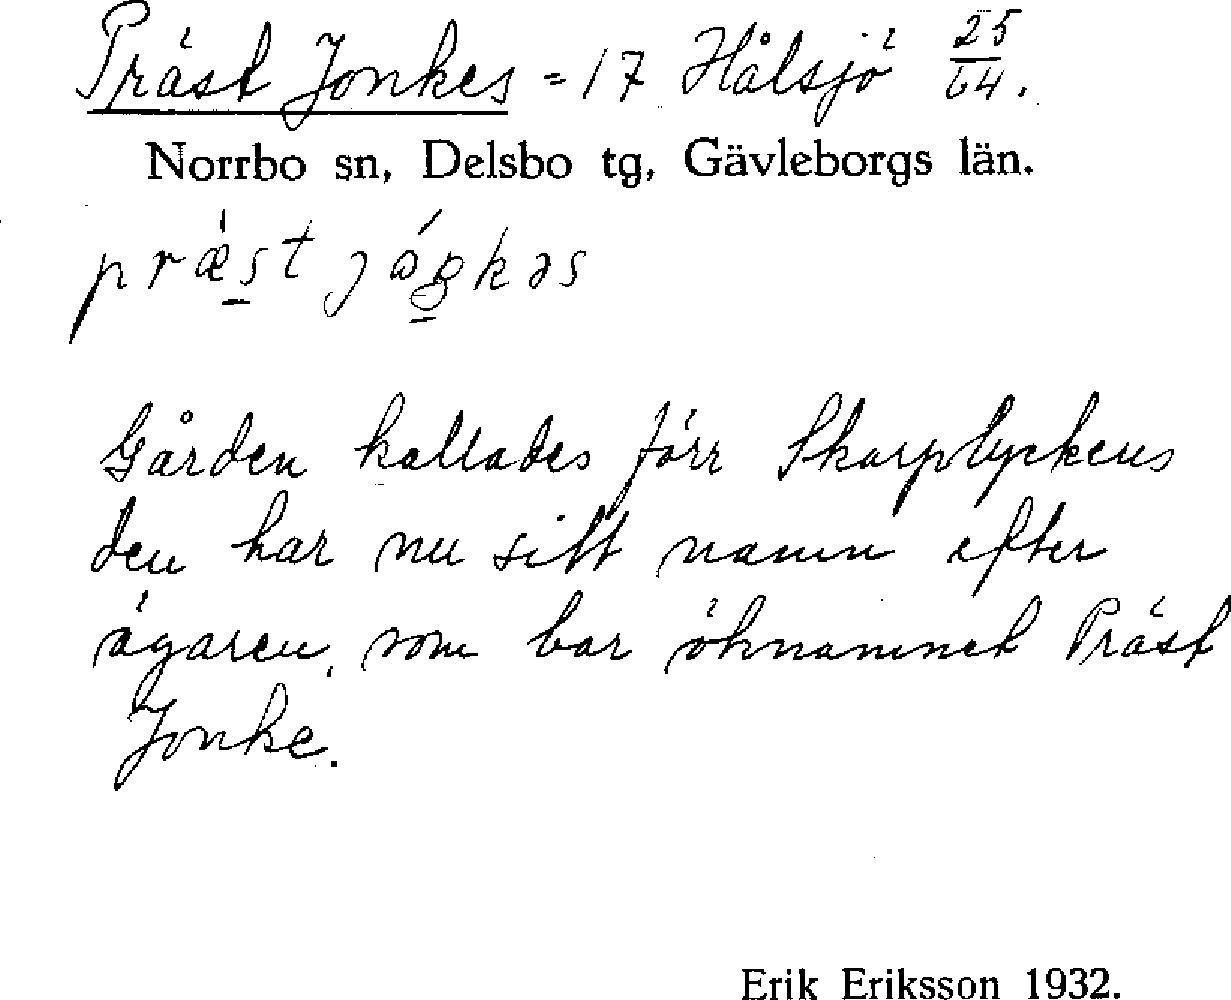 Präst Jonkes = 17 Hålsjö 25/64.
Norrbo sn, Delsbo tg, Gävleborgs län.
Gården kallades förr Skarplyckens
den har nu sitt namn efter
ägaren, som bar öknamnet Präst
Jonke.
Erik Eriksson 1932.